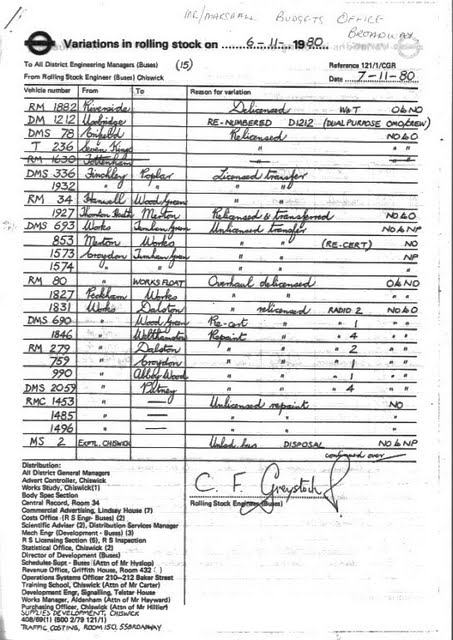 MR/MARSHALL BUDGETS OFFICE
BROADWAY
Variations in rolling stock on 6-11- 1980
To All District Engineering Managers (Buses) (15) Reference 121/1/CGR
From Rolling Stock Engineer (Buses) Chiswick Date 7-11-80
Vehicle number From To Reason for variation
RM 1882 Riverside Delicensed W&T O&NO
DM 1212 Uxbridge RE-NUMBERED D1212 (DUAL PURPOSE OMO/CREW)
DMS 78 Enfield Relicensed NO&O
T 236 Seven Kings " "
RM 1630 Tottenham " "
DMS 336 Finchley Poplar Licensed transfer
1932 " " " "
RM 34 Hanwell Wood Green " "
1927 Thornton Heath Merton Relicensed & transferred NO&O
DMS 693 Works Turnham Green Unlicensed transfer NO&NP
853 Merton Works " " (RE-CERT) NO
1573 Croydon Turnham Green " " NP
1574 " " " " "
RM 80 " WORKS FLOAT Overhaul delicensed O&NO
1827 Peckham Works " " "
1831 Works Dalston " relicensed RADIO 2 NO&O
DMS 690 " Wood Green Re-cert " " 1 "
1846 " Walthamstow Repaint " " 4 " "
RM 279 " Dalston " " " 2 " "
759 " Croydon " " " 1 " "
990 " Abbey Wood " " " 1 " "
DMS 2059 " Putney " " " 4 " "
RMC 1453 " — Unlicensed repaint NO
1485 " — " " "
1496 " — " " "
MS 2 EXPTL. CHISWICK Unlcd. bus DISPOSAL NO&NP
continued over
Distribution:
All District General Managers
Advert Controller, Chiswick
Works Study, Chiswick(1)
Body Spec Section
Central Record, Room 34
Commercial Advertising, Lindsay House (7)
Costs Office (R S Engr- Buses) (2)
Scientific Adviser (2), Distribution Services Manager
Mech Engr (Development - Buses) (3)
R S Licensing Section (5), R S Inspection
Statistical Office, Chiswick (2)
Director of Development (Buses)
Schedules Supt - Buses (Attn of Mr Hyslop)
Revenue Office, Griffith House, Room 432
Operations Systems Officer 210–212 Baker Street
Training School, Chiswick (Attn of Mr Carter)
Development Engr, Signalling, Telstar House
Works Manager, Aldenham (Attn of Mr Hayward)
Purchasing Officer, Chiswick (Attn of Mr Hillier)
SUPPLIES DEVELOPMENT, CHISWICK
408/69(1) (500 2/79 121/1)
TRAFFIC COSTING, ROOM 150, 55 BROADWAY
C. F. Greystock
Rolling Stock Engineer (Buses)